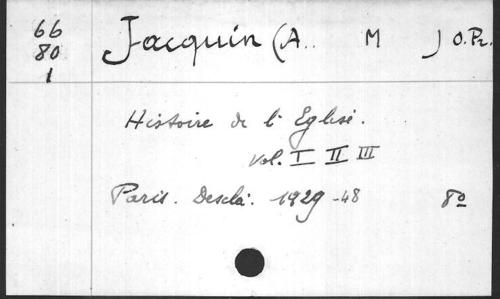 66
80
1
Jacquin (A.. M ) O.Pr.
Histoire de l' Eglise.
Vol. I II III
Paris. Desclé. 1929-48 8º